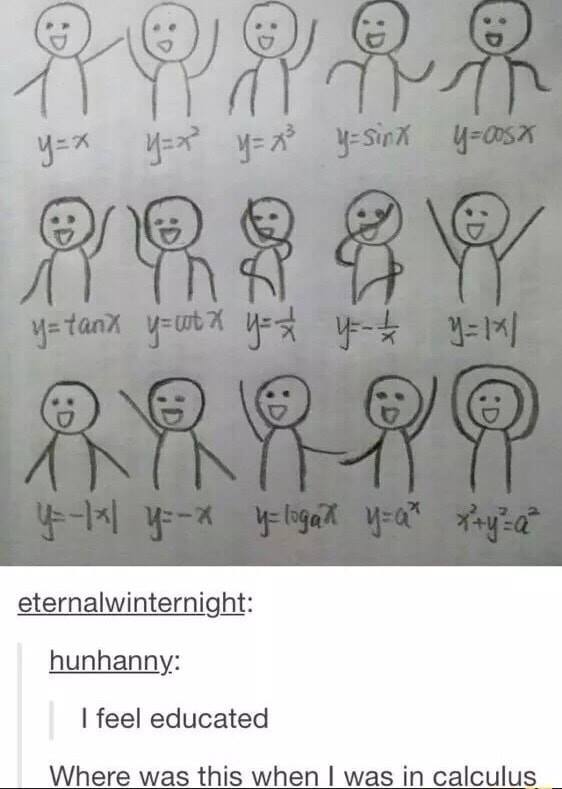 y=x y=x² y=x³ y=sinx y=cosx
y=tanx y=cotx y=1/x y=-1/x y=|x|
y=-|x| y=-x y=logax y=aˣ x²+y²=a²
eternalwinternight:
hunhanny:
I feel educated
Where was this when I was in calculus